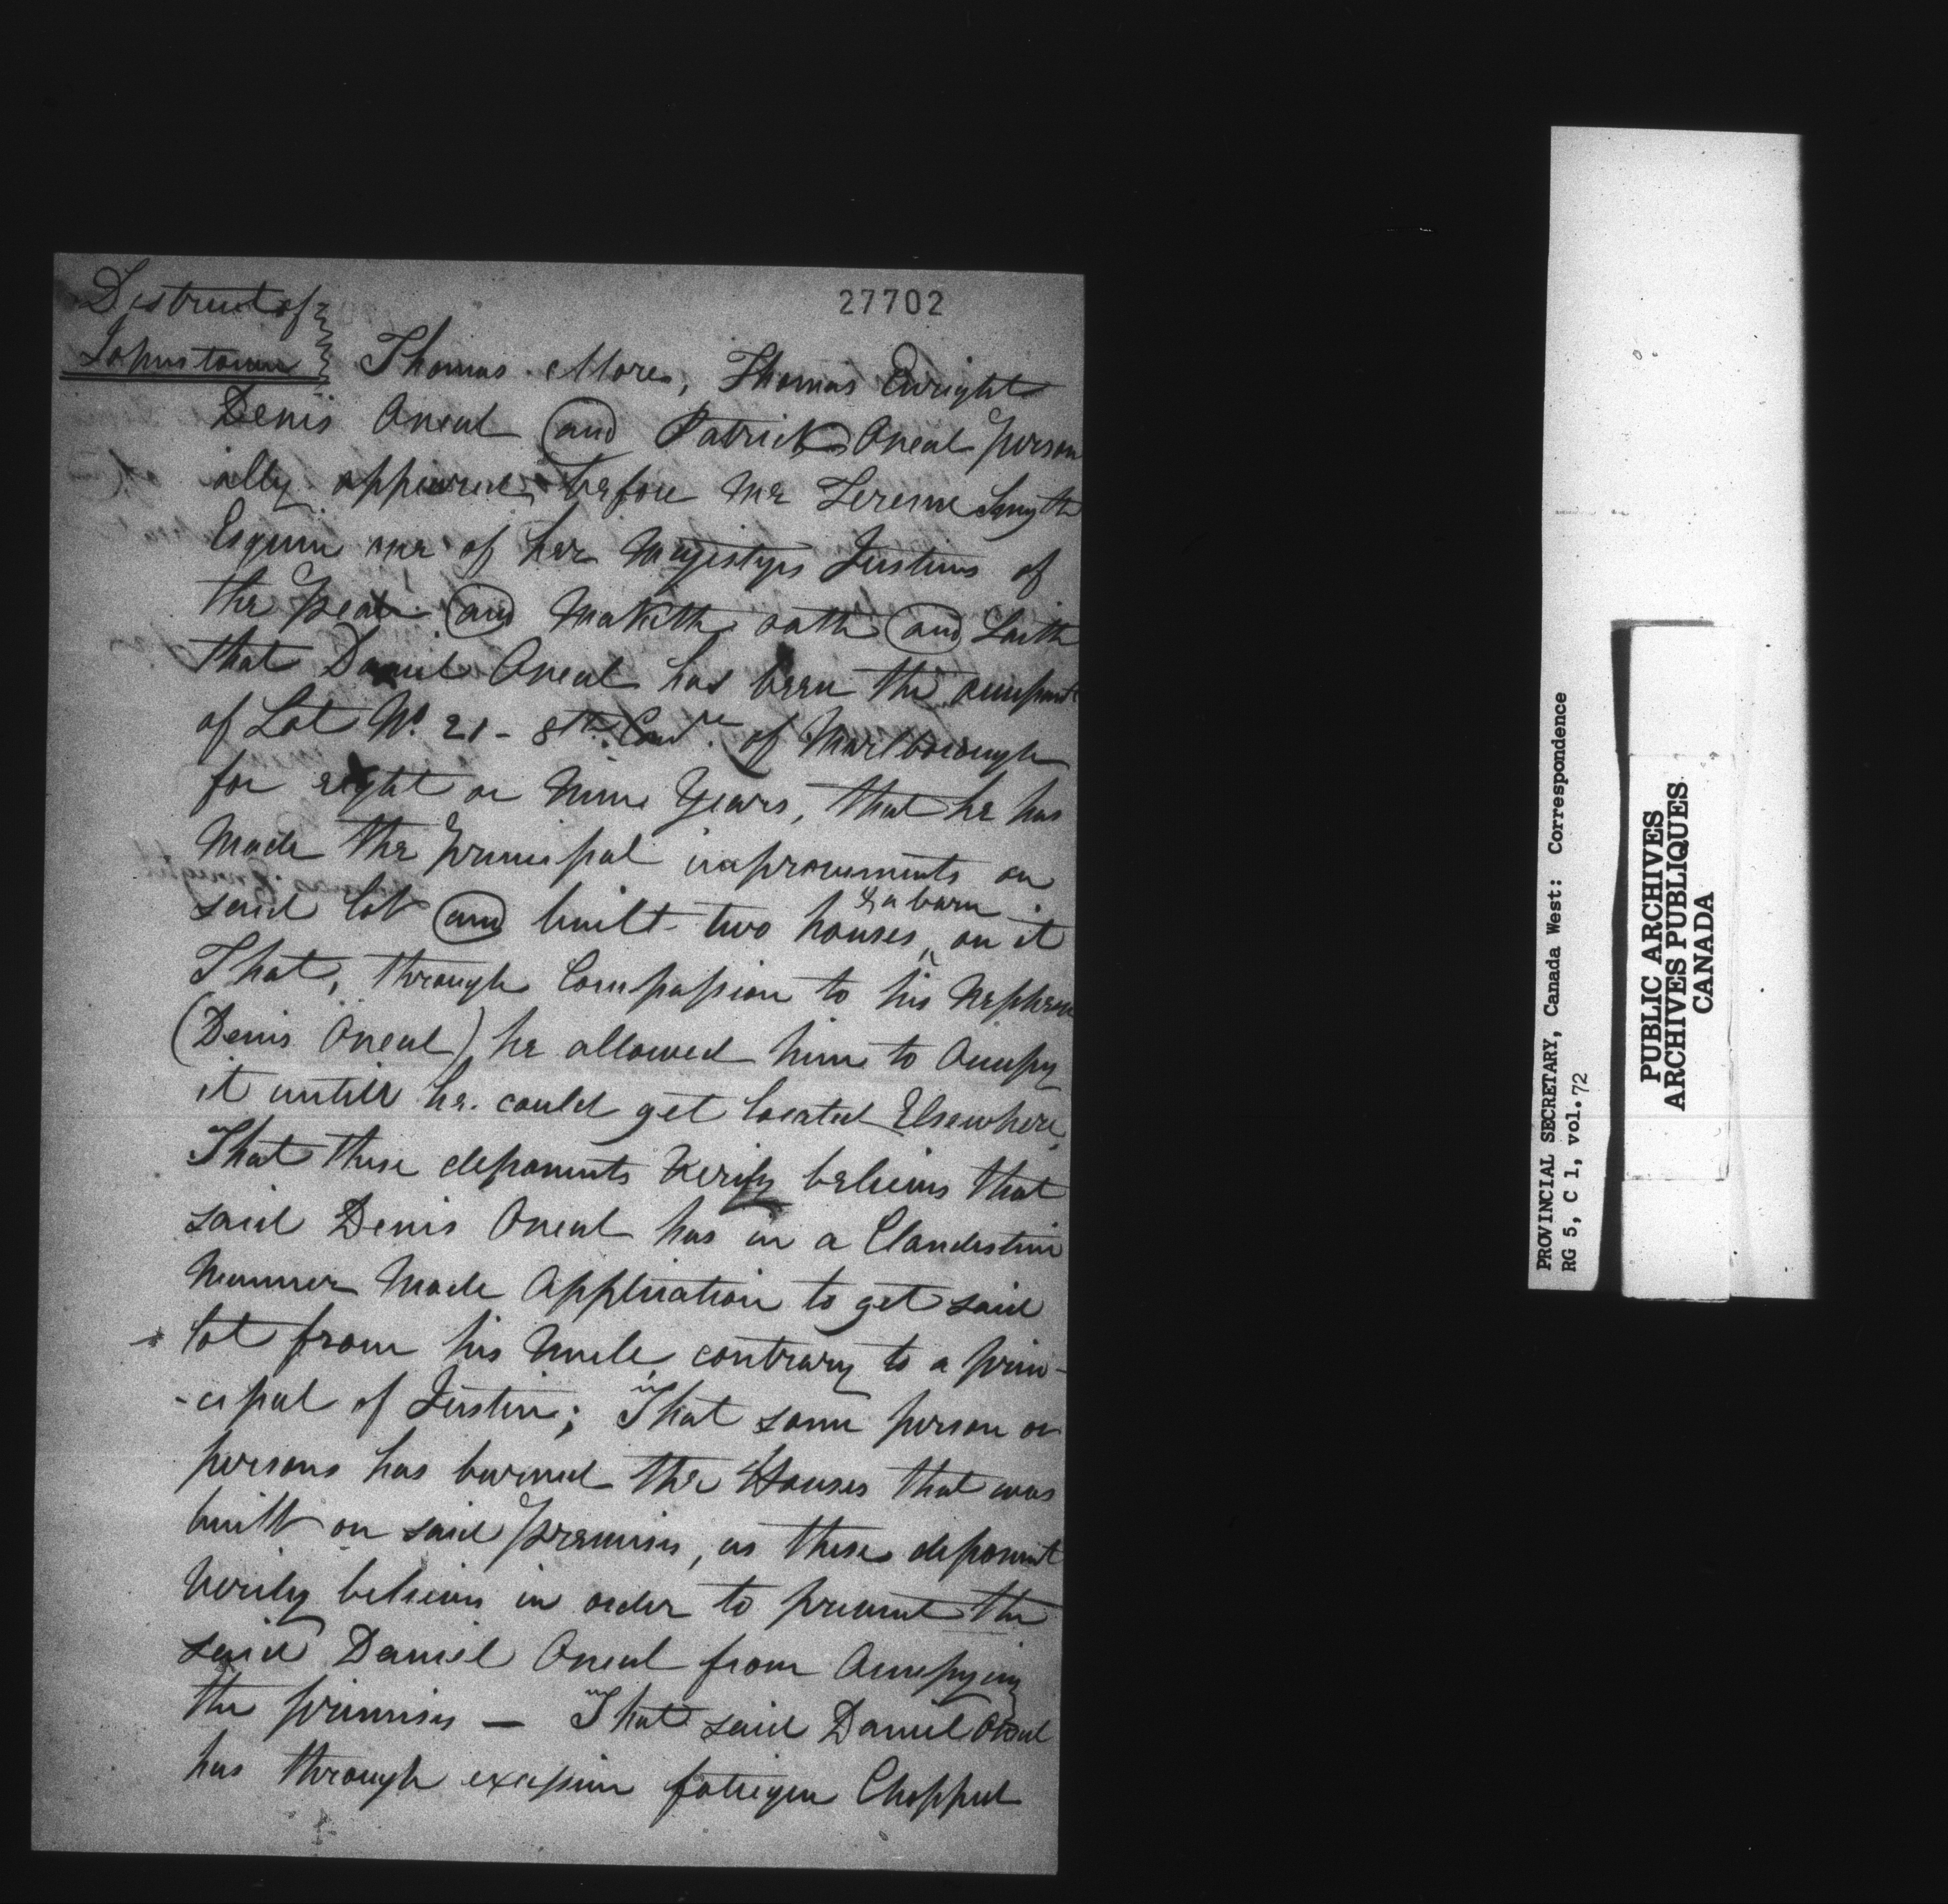 27702
District of
Johnstown
Thomas Mores, Thomas Enright
Denis Oneal and Patrick Oneal person
ally appeared before me Terence Smyth
Esquire one of her Majestys Justices of
the peace and Maketh oath and Saith
that Daniel Oneal has been the occupant
of Lot No. 21 - 8th Con. of Marlborough
for eight or Nine Years, that he has
Made the principal improvements on
said lot and built two houses & a barn on it
That, through Compassion to his Nephew
(Denis Oneal) he allowed him to Occupy
it untill he could get located Elsewhere,
That these deponents Verily believes that
said Denis Oneal has in a Clandestine
Manner Made Application to get said
lot from his Uncle contrary to a prin-
-cipal of Justice; That some person or
persons has burned the Houses that was
built on said premises, as these deponent
Verily believes in order to prevent the
said Daniel Oneal from Occupying
the premises — That said Daniel Oneal
has through excessive fatigue Chopped
PROVINCIAL SECRETARY, Canada West: Correspondence
RG 5, C 1, vol. 72
PUBLIC ARCHIVES
ARCHIVES PUBLIQUES
CANADA